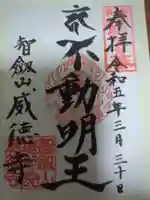 奉拝
令和五年三月三十日
不動明王
智劔山威徳寺